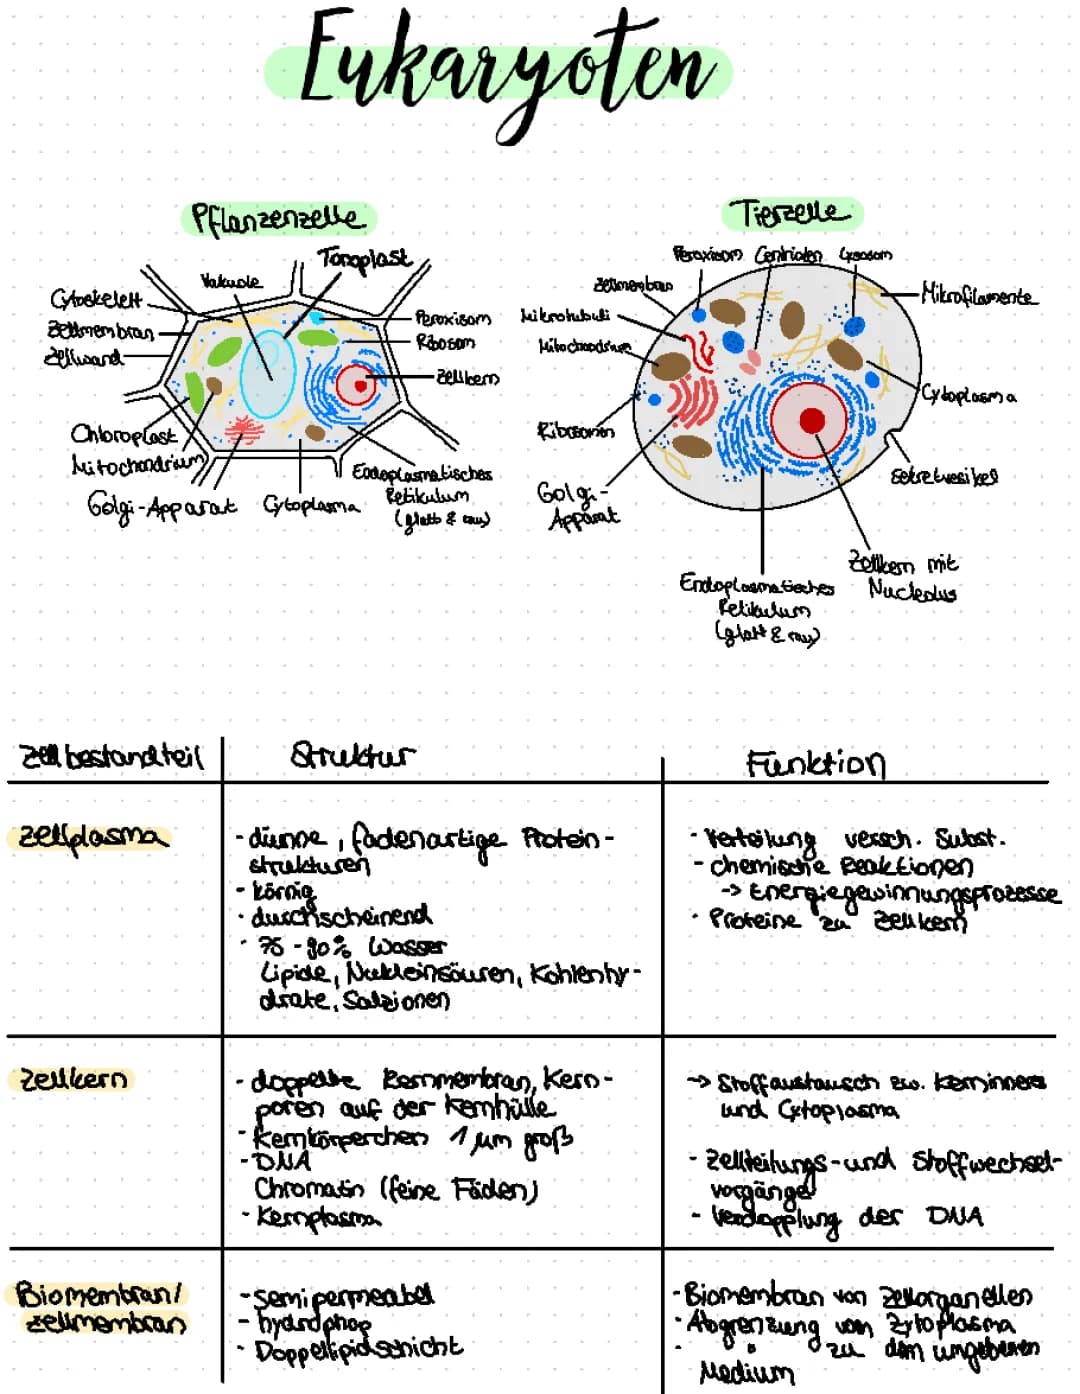 Eukaryoten
Pflanzenzelle
Tonoplast
Vakuole
Cytoskelett
Zellmembran
Zellwand
Peroxisom
Ribosom
Zellkern
Chloroplast
Mitochondrium
Golgi-Apparat
Cytoplasma
Endoplasmatisches
Retikulum
(glatt & rau)
Tierzelle
Peroxisom Centriolen Lysosom
Zellmembran
Mikrotubuli
Mitochondrium
Mikrofilamente
Cytoplasma
Ribosomen
Sekretvesikel
Golgi-
Apparat
Zellkern mit
Nucleolus
Endoplasmatisches
Retikulum
(glatt & rau)
Zellbestandteil
Struktur
Funktion
Zellplasma
- dünne, fadenartige Protein-
strukturen
- körnig
- durchscheinend
- 75-90% Wasser
Lipide, Nukleinsäuren, Kohlenhy-
drate, Salzionen
- Verteilung versch. Subst.
- chemische Reaktionen
-> Energiegewinnungsprozesse
- Proteine zu Zellkern
Zellkern
- doppelte Kernmembran, Kern-
poren auf der Kernhülle
- Kernkörperchen 1 µm groß
- DNA
Chromatin (feine Fäden)
- Kernplasma
-> Stoffaustausch zw. Kerninneres
und Cytoplasma
- Zellteilungs- und Stoffwechsel-
vorgänge
- Verdopplung der DNA
Biomembran/
Zellmembran
- semipermeabel
- hydrophop
- Doppellipidschicht
- Biomembran von Zellorganellen
- Abgrenzung vom Zytoplasma
zu dem umgebenen
Medium